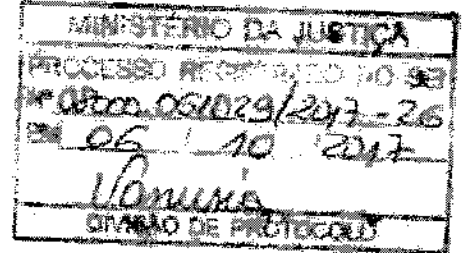 MINISTÉRIO DA JUSTIÇA
PROCESSO REGISTRADO NO SEI
Nº 08000.061029/2017-26
EM 06 / 10 / 2017
Vanusia
DIVISÃO DE PROTOCOLO